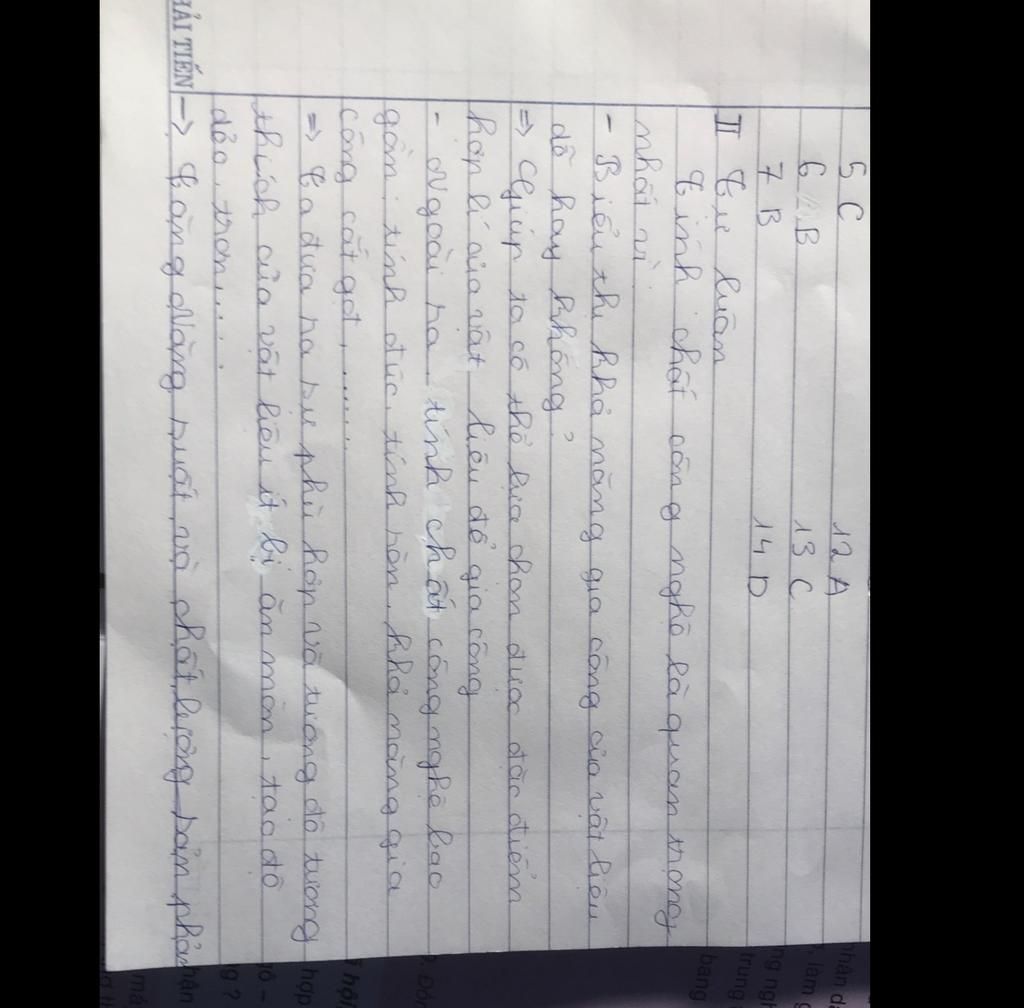 5 C 12 A
6 B 13 C
7 B 14 D
II Tự luận
Tính chất công nghệ là quan trọng
nhất vì
- Biểu thị khả năng gia công của vật liệu
dễ hay không?
=> Giúp ta có thể lựa chọn được đặc điểm
hợp lí của vật liệu để gia công
- Ngoài ra tính chất công nghệ bao
gồm: tính đúc, tính rèn, khả năng gia
công cắt gọt, ......
=> Ta đưa ra sự phù hợp và tương đô tương
thích của vật liệu ít bị ăn mòn, tạo độ
dẻo, trơn,....
HẢI TIẾN -> Tăng năng suất và chất lượng sản phẩm